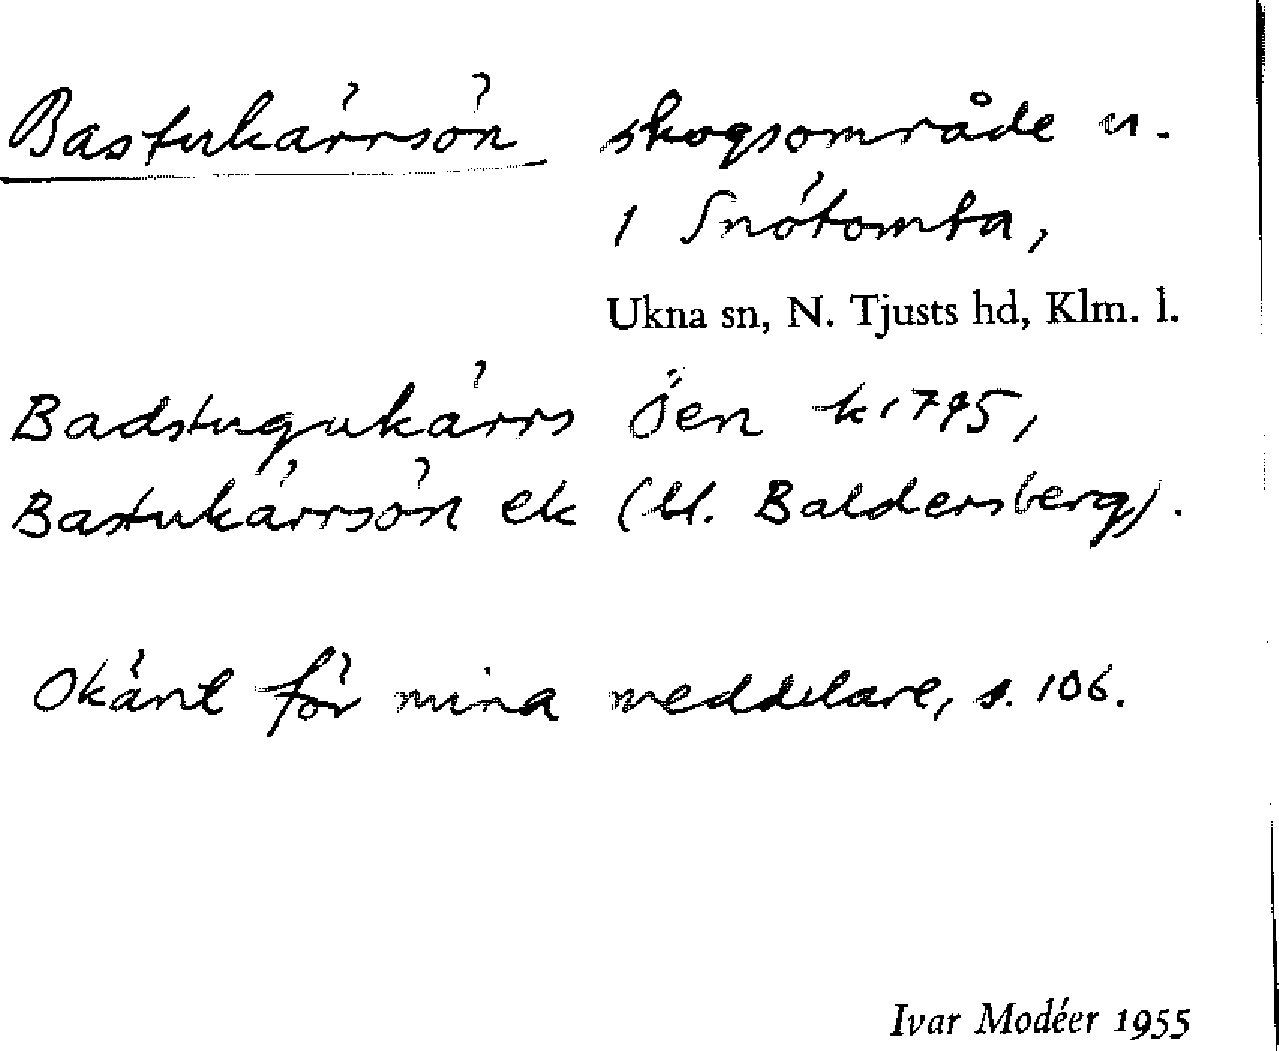 Bastukärrsön skogsområde u.
1 Snötomta,
Ukna sn, N. Tjusts hd, Klm. l.
Badstugukärrs Öen k 1795,
Bastukärrsön ek (bl. Baldersberg).
Okänt för mina meddelare, s. 106.
Ivar Modéer 1955